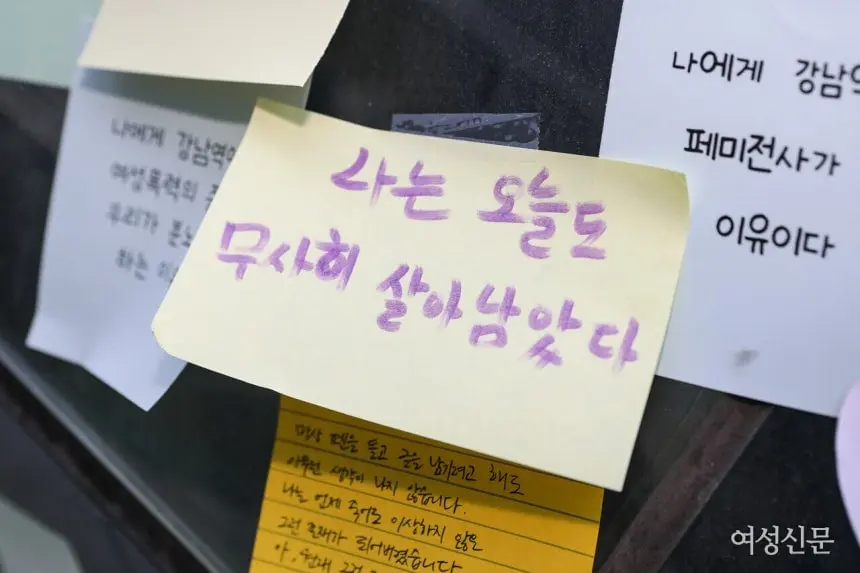 나에게 강남역
여성폭력의
우리가 분노
하는 이
나는 오늘도
무사히 살아남았다
나에게 강남역
페미전사가
이유이다
막상 펜을 들고 글을 남기려고 해도
아무런 생각이 나지 않습니다.
나는 언제 죽어도 이상하지 않은
그런 존재가 되어버렸습니다
아,
여성신문